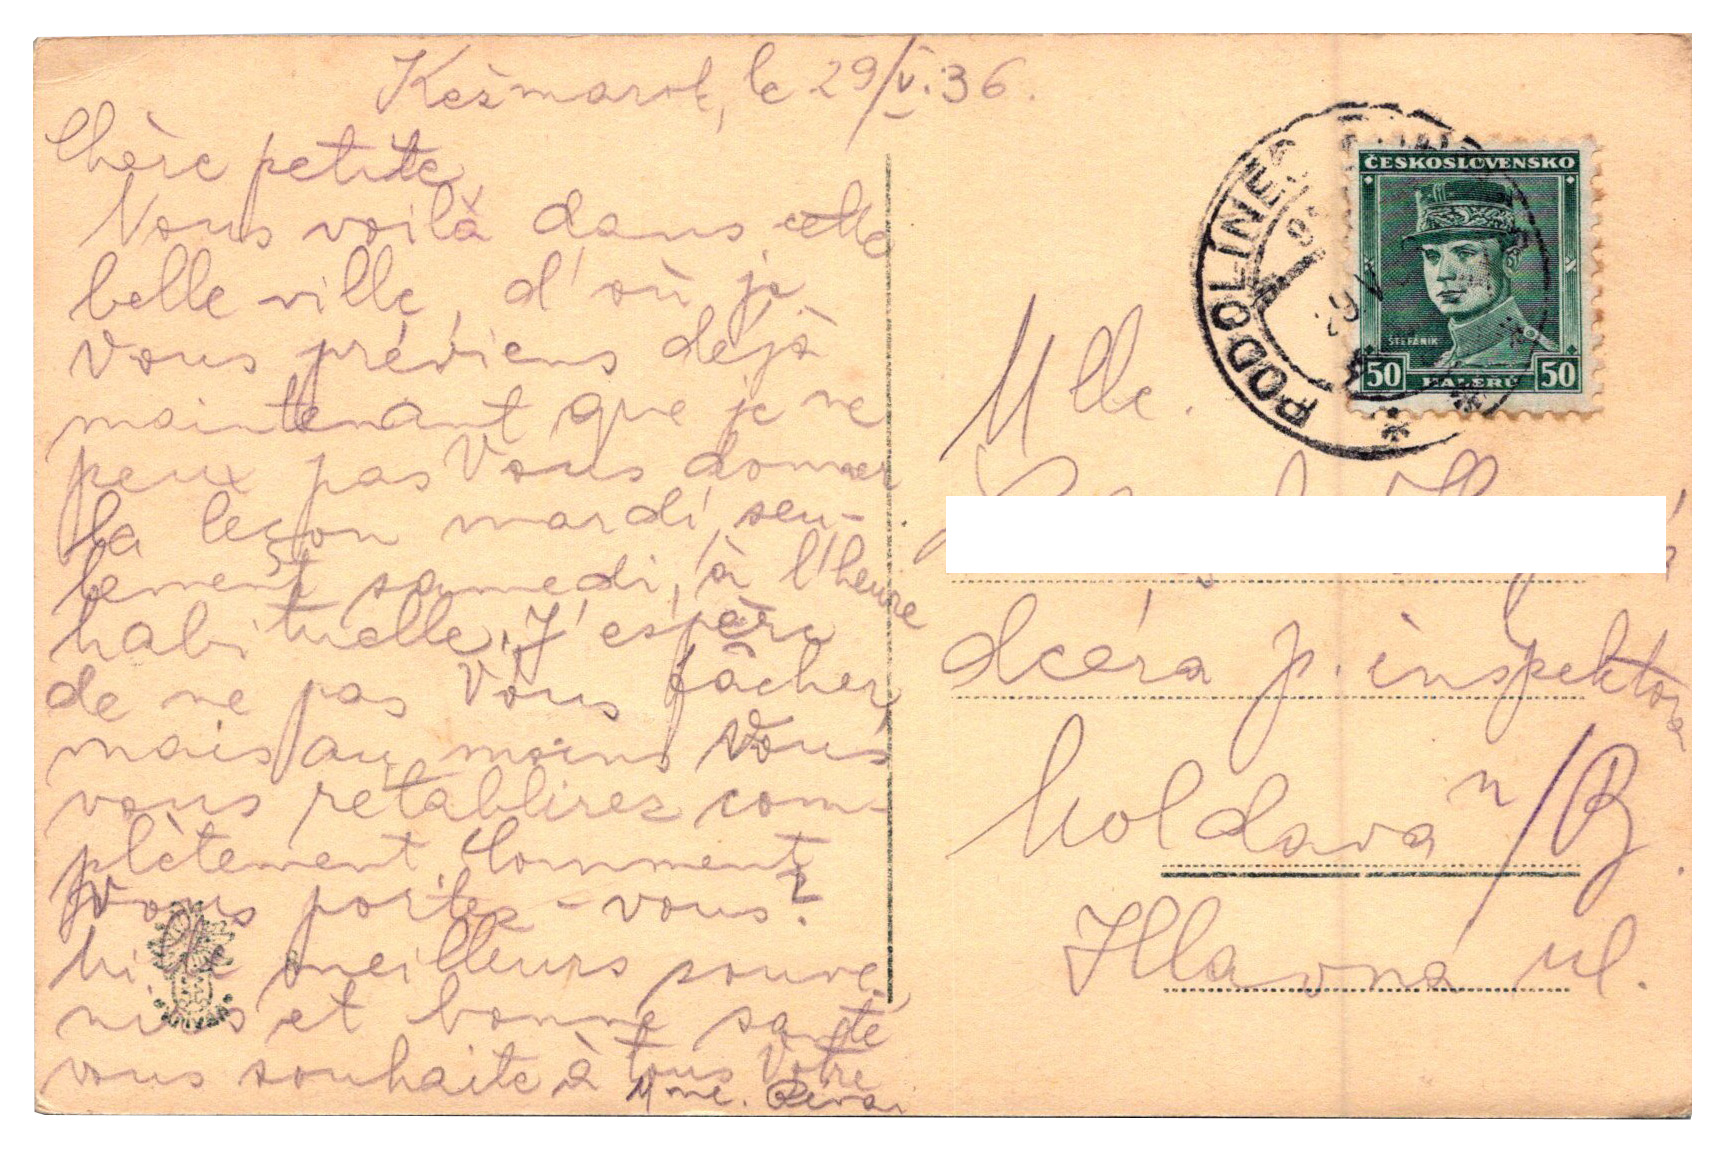 Kežmarok, le 29/V.36.
Chère petite,
Nous voilà dans cette
belle ville, d'où je
Vous préviens déjà
maintenant que je ne
peux pas Vous donner
la leçon mardi, seu-
lement samedi, à l'heure
habituelle. J'espère
de ne pas Vous fâcher,
mais au moins Vous
vous rétablirez com-
plètement. Comment
Vous portez-vous?
Mille meilleurs souve-
nirs et bonne santé
vous souhaite à tous Votre
Mme.
PODOLINEC
ČESKOSLOVENSKO
ŠTEFÁNIK
50 HALÉŘŮ 50
Mlle.
dcéra p. inspektora
Moldava n/B.
Hlavná ul.